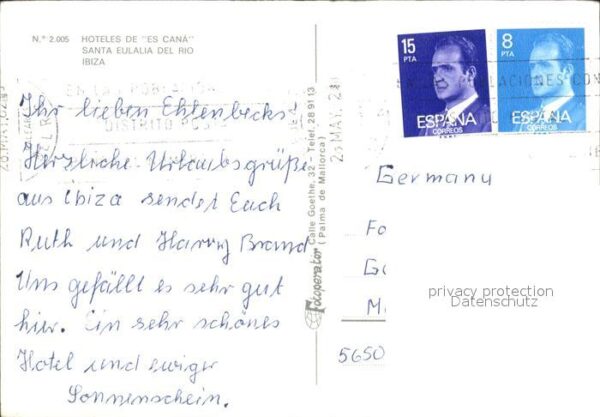 N.º 2.005 HOTELES DE "ES CANÁ"
SANTA EULALIA DEL RIO
IBIZA
Ihr lieben Ehlenbecks!
Herzliche Urlaubsgrüße
aus Ibiza sendet Euch
Ruth und Harry Brand
Uns gefällt es sehr gut
hier. Ein sehr schönes
Hotel und ewiger
Sonnenschein.
Fotoperator Calle Goethe, 32 - Telef. 28 91 13
(Palma de Mallorca)
15
PTA
ESPAÑA
CORREOS
8
PTA
ESPAÑA
CORREOS
EN LAS POBLACION
DISTRITO POS
LACIONES CON
Germany
Fo
Ga
M
5650
privacy protection
Datenschutz